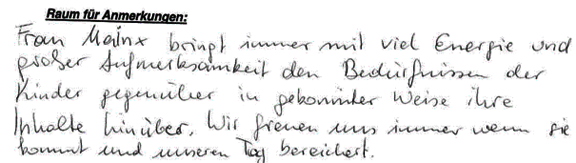 Raum für Anmerkungen:
Frau Mainx bringt immer mit viel Energie und
großer Aufmerksamkeit den Bedürfnissen der
Kinder gegenüber in gekonnter Weise ihre
Inhalte hinüber. Wir freuen uns immer wenn sie
kommt und unseren Tag bereichert.